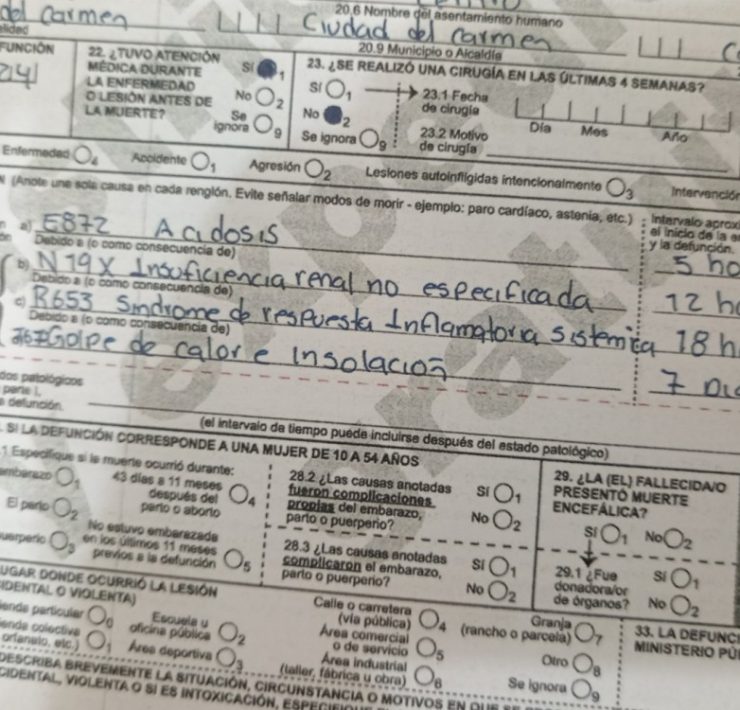 del Carmen
20.6 Nombre del asentamiento humano
Ciudad del Carmen
20.9 Municipio o Alcaldía
FUNCIÓN
22. ¿TUVO ATENCIÓN MÉDICA DURANTE LA ENFERMEDAD O LESIÓN ANTES DE LA MUERTE?
Sí 1
No 2
Se ignora 9
23. ¿SE REALIZÓ UNA CIRUGÍA EN LAS ÚLTIMAS 4 SEMANAS?
Sí 1
No 2
Se ignora 9
23.1 Fecha de cirugía
Día Mes Año
23.2 Motivo de cirugía
Enfermedad 4 Accidente 1 Agresión 2 Lesiones autoinfligidas intencionalmente 3 Intervención
(Anote una sola causa en cada renglón. Evite señalar modos de morir - ejemplo: paro cardíaco, astenia, etc.)
Intervalo aprox
el inicio de la e
y la defunción.
a) E872 Acidosis
Debido a (o como consecuencia de)
5 ho
b) N19X Insuficiencia renal no especificada
Debido a (o como consecuencia de)
12 h
c) R653 Sindrome de respuesta Inflamatoria sistemica
Debido a (o como consecuencia de)
18 h
Golpe de calor e Insolación
7 Di
dos patológicos
parte I,
a defunción.
(el intervalo de tiempo puede incluirse después del estado patológico)
SI LA DEFUNCIÓN CORRESPONDE A UNA MUJER DE 10 A 54 AÑOS
.1 Especifique si la muerte ocurrió durante:
embarazo 1
El parto 2
uerperio 3
43 días a 11 meses después del parto o aborto 4
No estuvo embarazada en los últimos 11 meses previos a la defunción 5
28.2 ¿Las causas anotadas fueron complicaciones propias del embarazo, parto o puerperio?
Sí 1
No 2
28.3 ¿Las causas anotadas complicaron el embarazo, parto o puerperio?
Sí 1
No 2
29. ¿LA (EL) FALLECIDA/O PRESENTÓ MUERTE ENCEFÁLICA?
Sí 1 No 2
29.1 ¿Fue donadora/or de órganos?
Sí 1
No 2
UGAR DONDE OCURRIÓ LA LESIÓN
IDENTAL O VIOLENTA)
ienda particular 0
ienda colectiva
orfanato, etc.) 1
Escuela u oficina pública 2
Área deportiva 3
Calle o carretera (vía pública) 4
Área comercial o de servicio 5
Área industrial (taller, fábrica u obra) 6
Granja (rancho o parcela) 7
Otro 8
Se ignora 9
33. LA DEFUNCI
MINISTERIO PÚ
DESCRIBA BREVEMENTE LA SITUACIÓN, CIRCUNSTANCIA O MOTIVOS EN QUE SE
CIDENTAL, VIOLENTA O SI ES INTOXICACIÓN,